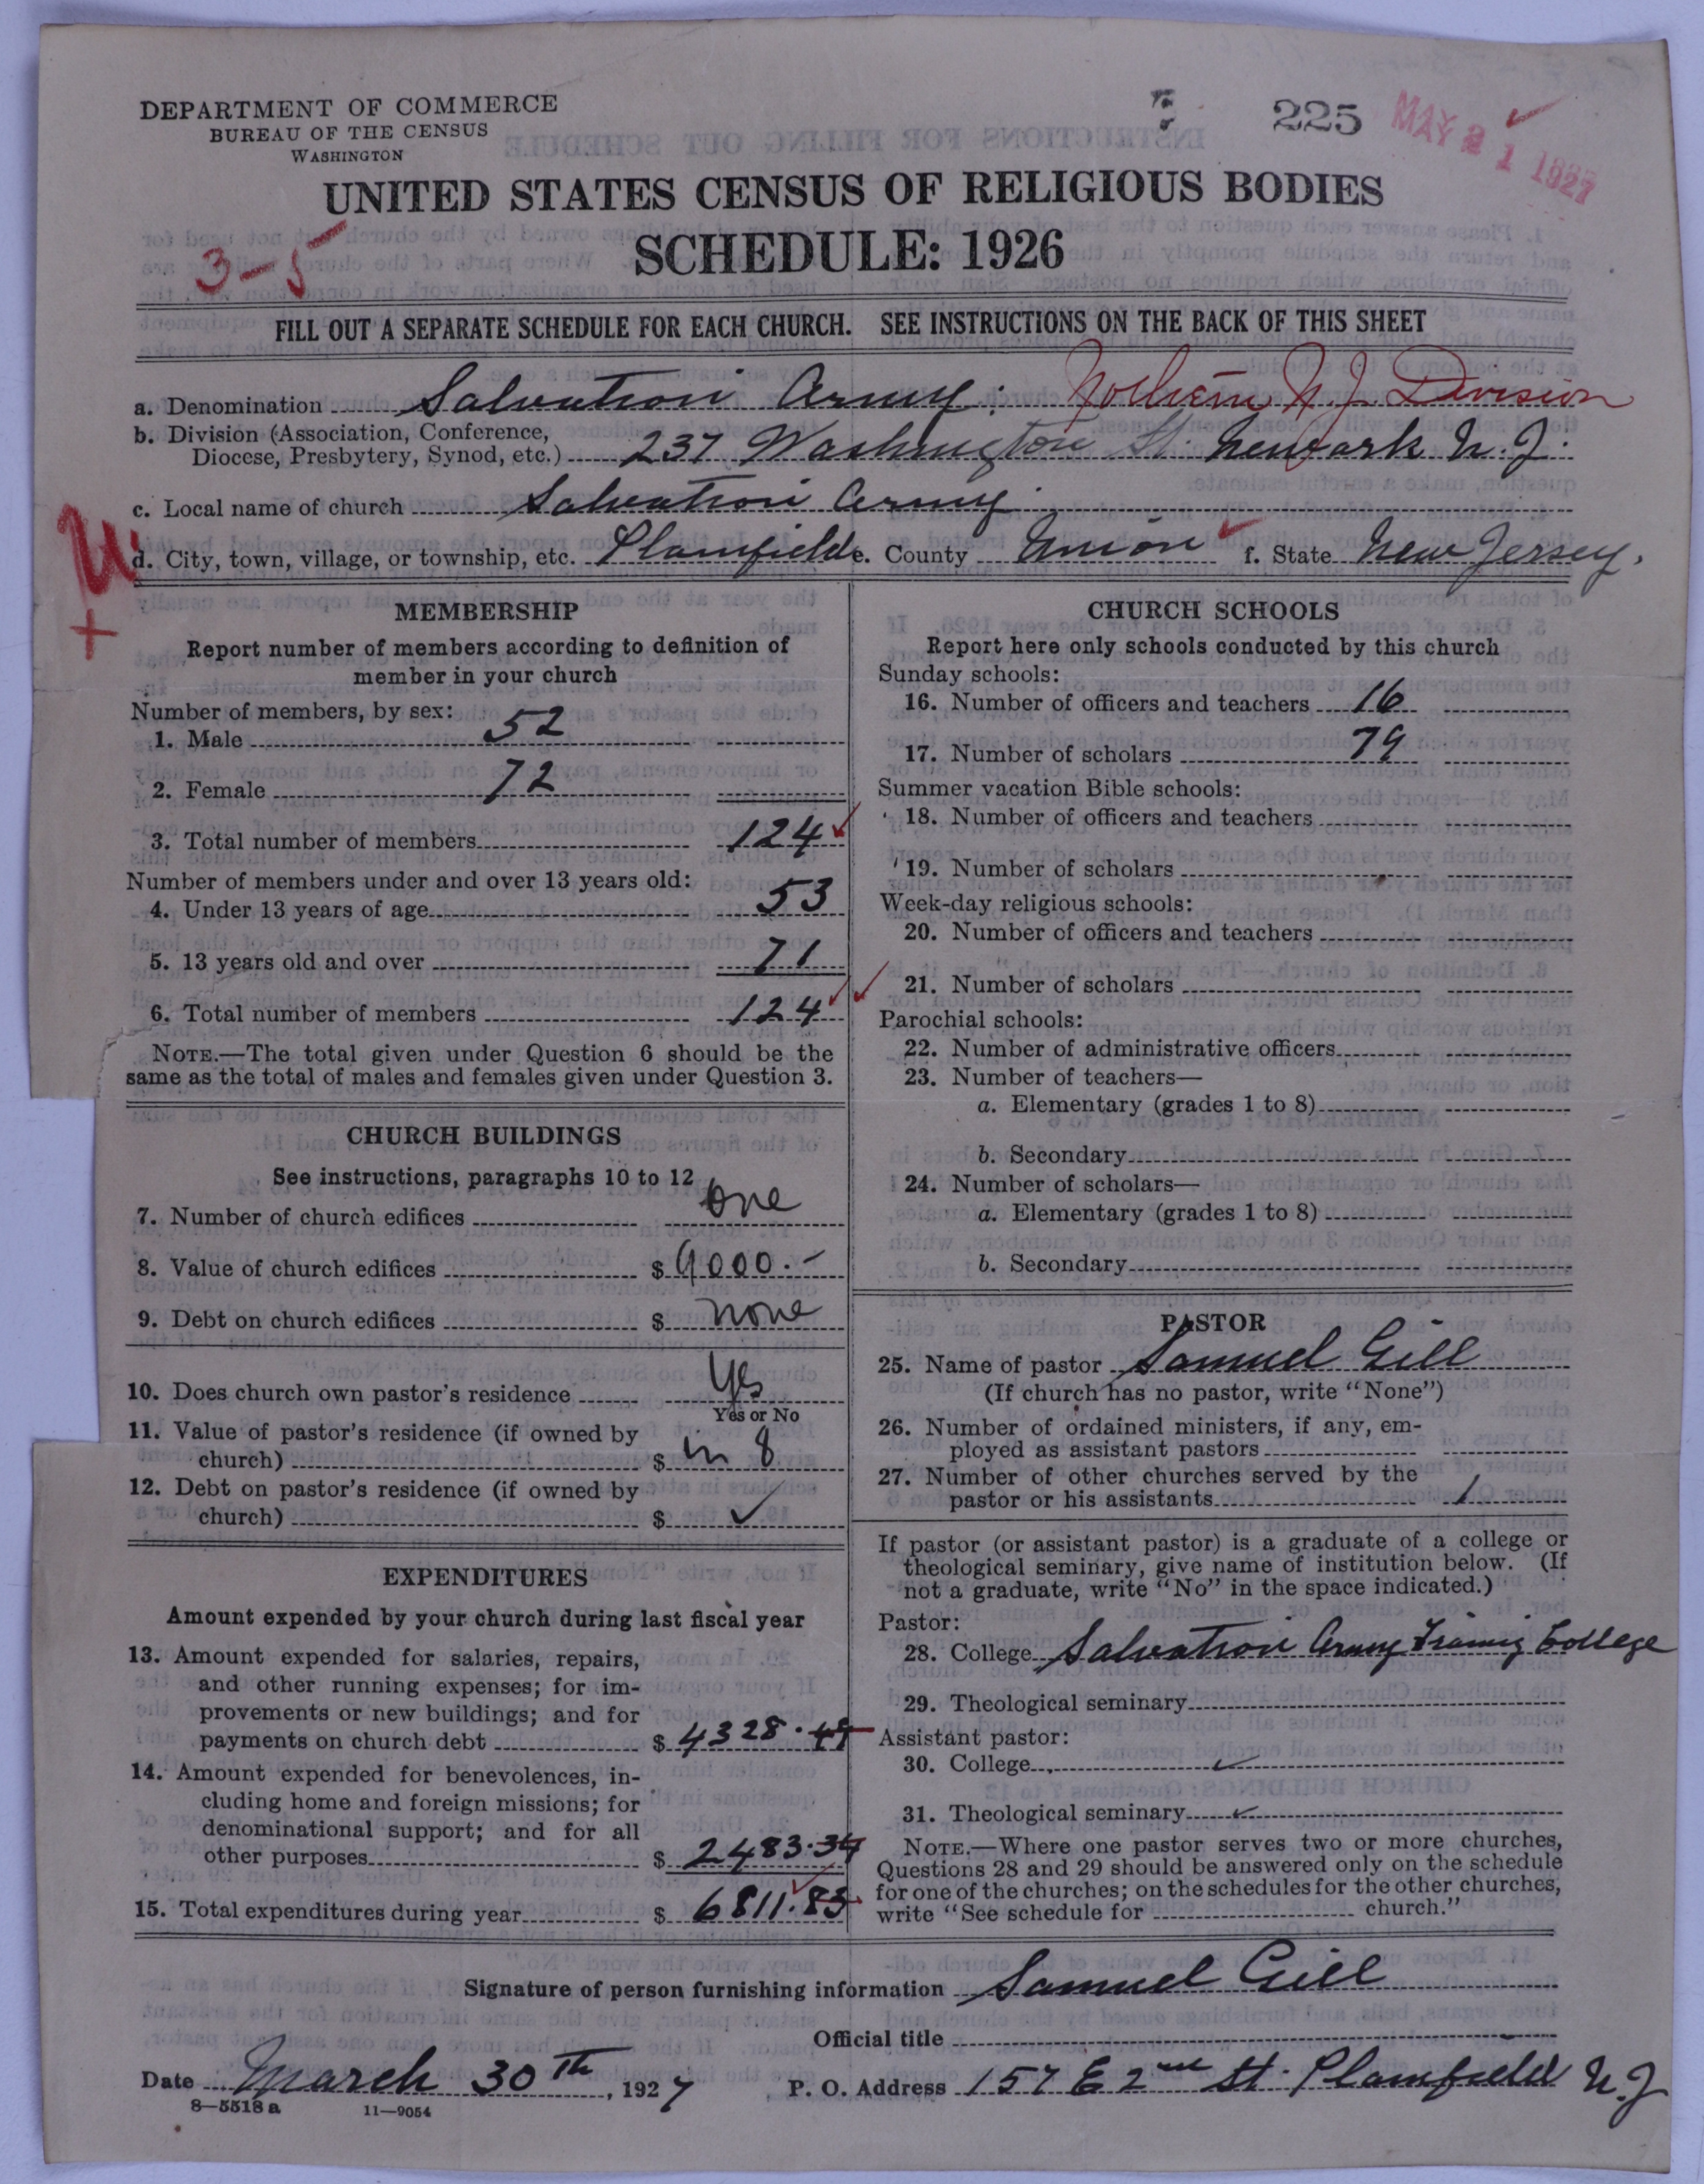 DEPARTMENT OF COMMERCE
BUREAU OF THE CENSUS
WASHINGTON
225
MAY 21 1927
UNITED STATES CENSUS OF RELIGIOUS BODIES
SCHEDULE: 1926
3-5
FILL OUT A SEPARATE SCHEDULE FOR EACH CHURCH. SEE INSTRUCTIONS ON THE BACK OF THIS SHEET
a. Denomination Salvation Army: Northern N.J. Division
b. Division (Association, Conference,
Diocese, Presbytery, Synod, etc.) 237 Washington St. Newark N.J.
c. Local name of church Salvation Army.
d. City, town, village, or township, etc. Plainfield e. County Union f. State New Jersey.
MEMBERSHIP
Report number of members according to definition of
member in your church
Number of members, by sex:
1. Male 52
2. Female 72
3. Total number of members 124
Number of members under and over 13 years old:
4. Under 13 years of age 53
5. 13 years old and over 71
6. Total number of members 124
NOTE.—The total given under Question 6 should be the
same as the total of males and females given under Question 3.
CHURCH BUILDINGS
See instructions, paragraphs 10 to 12
7. Number of church edifices one
8. Value of church edifices $ 9000.-
9. Debt on church edifices $ none
10. Does church own pastor's residence Yes
Yes or No
11. Value of pastor's residence (if owned by
church) $ in 8
12. Debt on pastor's residence (if owned by
church) $ ✓
EXPENDITURES
Amount expended by your church during last fiscal year
13. Amount expended for salaries, repairs,
and other running expenses; for im-
provements or new buildings; and for
payments on church debt $ 4328.49
14. Amount expended for benevolences, in-
cluding home and foreign missions; for
denominational support; and for all
other purposes $ 2483.34
15. Total expenditures during year $ 6811.83
CHURCH SCHOOLS
Report here only schools conducted by this church
Sunday schools:
16. Number of officers and teachers 16
17. Number of scholars 79
Summer vacation Bible schools:
18. Number of officers and teachers
19. Number of scholars
Week-day religious schools:
20. Number of officers and teachers
21. Number of scholars
Parochial schools:
22. Number of administrative officers
23. Number of teachers—
a. Elementary (grades 1 to 8)
b. Secondary
24. Number of scholars—
a. Elementary (grades 1 to 8)
b. Secondary
PASTOR
25. Name of pastor Samuel Gill
(If church has no pastor, write "None")
26. Number of ordained ministers, if any, em-
ployed as assistant pastors
27. Number of other churches served by the
pastor or his assistants 1
If pastor (or assistant pastor) is a graduate of a college or
theological seminary, give name of institution below. (If
not a graduate, write "No" in the space indicated.)
Pastor:
28. College Salvation Army Training College
29. Theological seminary
Assistant pastor:
30. College ✓
31. Theological seminary ✓
NOTE.—Where one pastor serves two or more churches,
Questions 28 and 29 should be answered only on the schedule
for one of the churches; on the schedules for the other churches,
write "See schedule for church."
Signature of person furnishing information Samuel Gill
Official title
Date March 30th, 1927 P. O. Address 157 E 2nd St. Plainfield N.J
8—5518a 11—9054